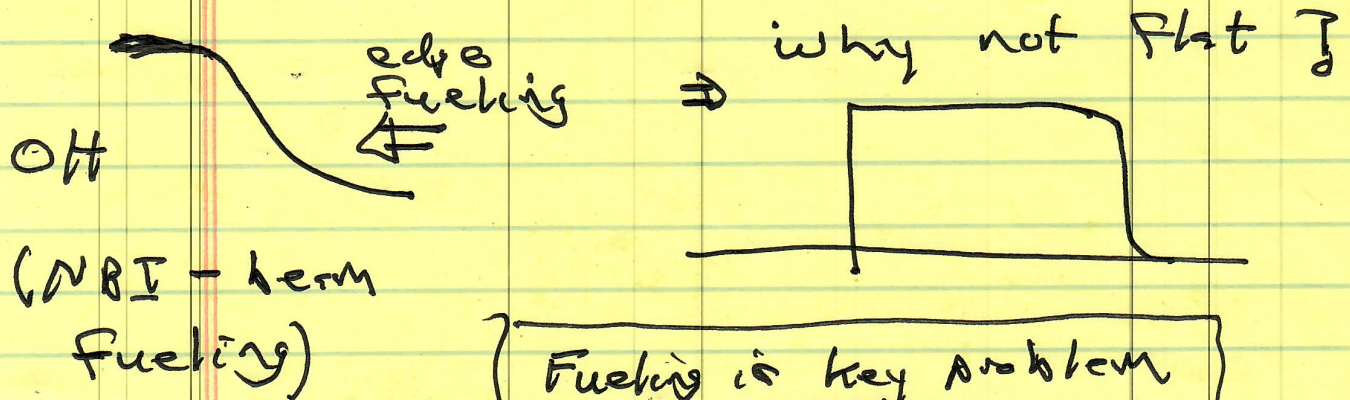 edge
fueling
⇒ why not flat ?
OH
(NBI - beam
fueling)
Fueling is key problem